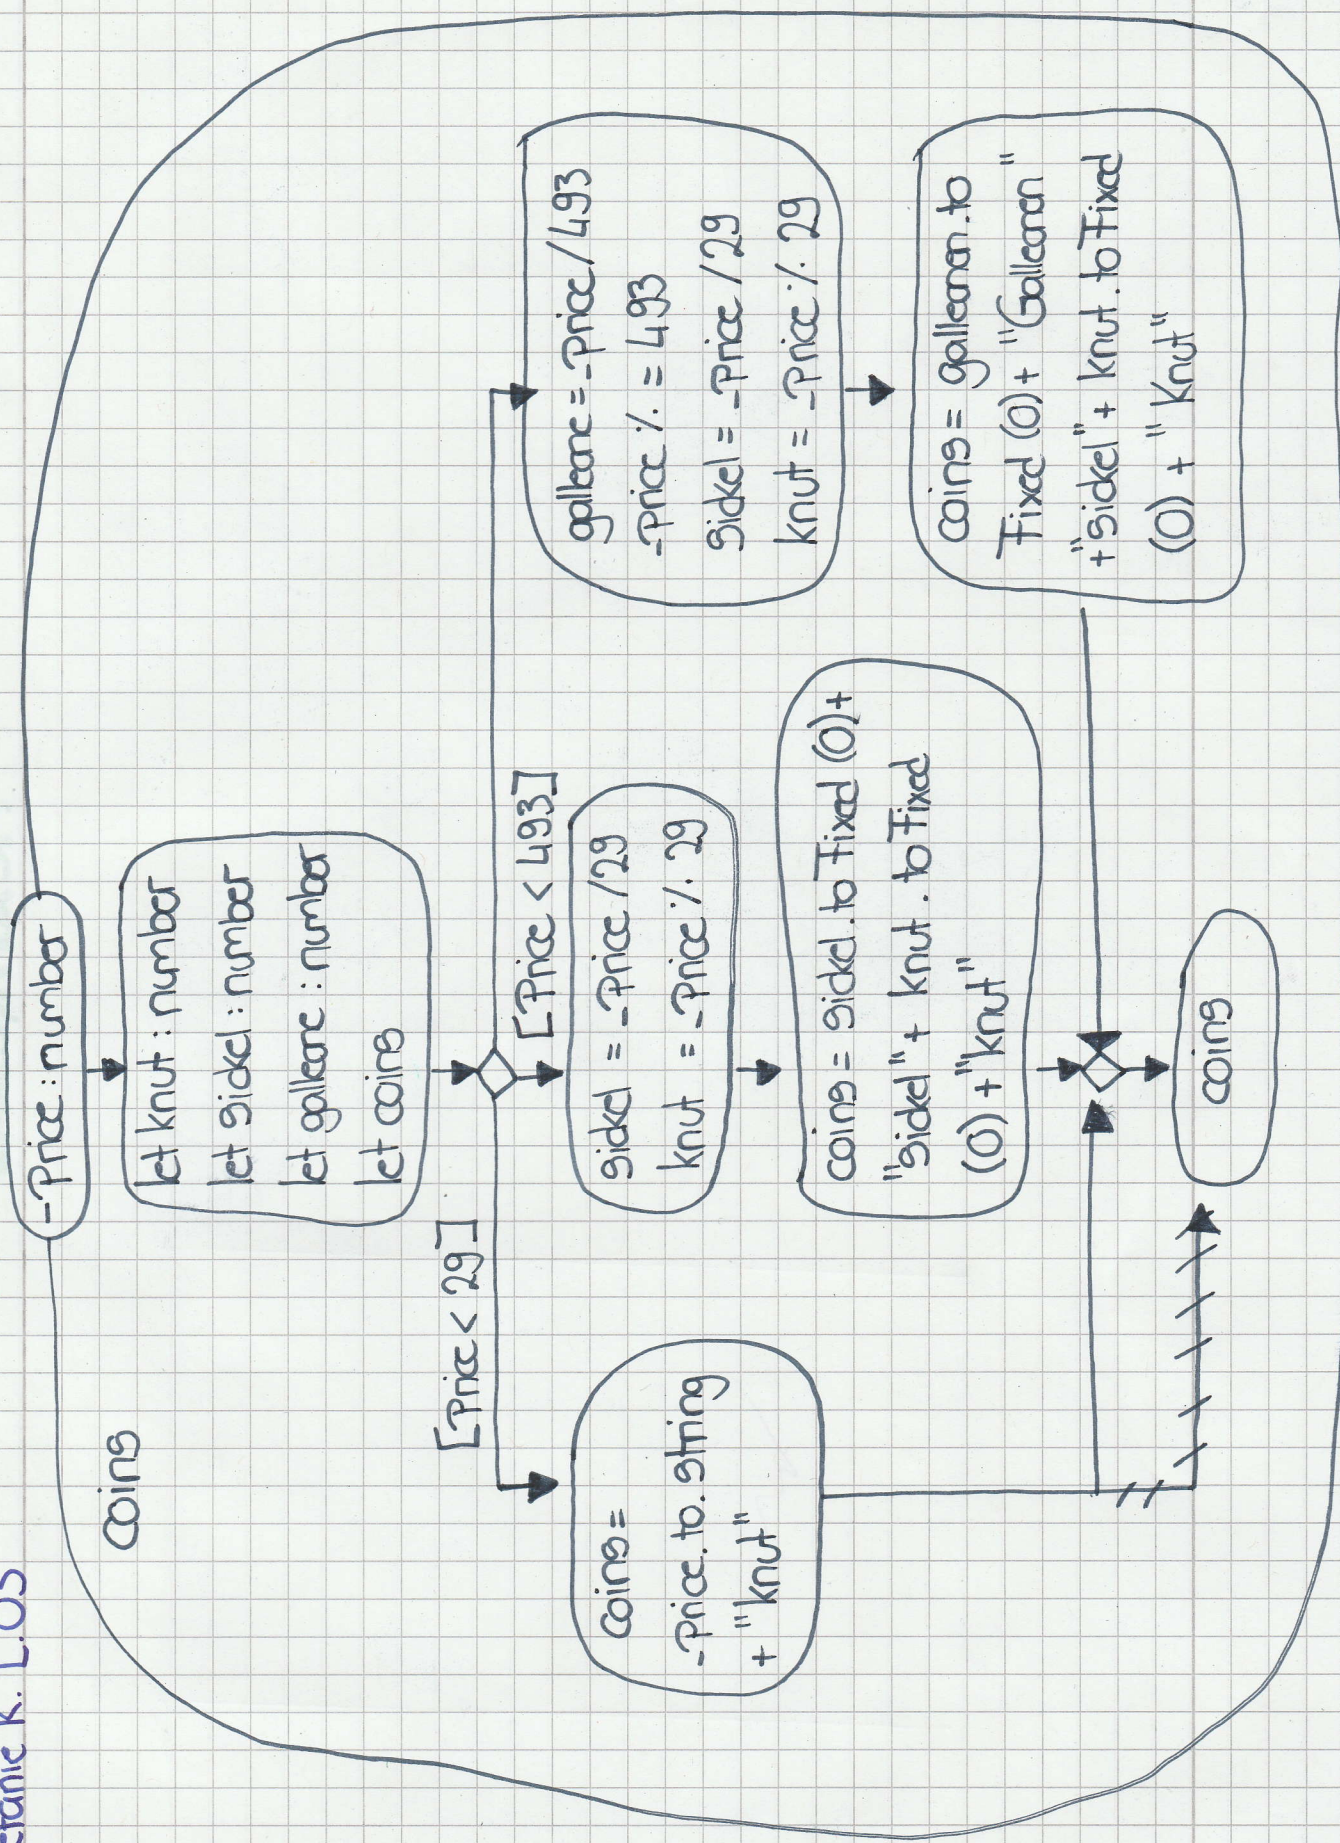 K. L.05
coins
-Price : number
let knut : number
let sickel : number
let galleone : number
let coins
[Price < 29]
[Price < 493]
coins =
-Price.to.string
+ "knut"
sickel = -Price /29
knut = -Price % 29
coins = sickel.toFixed (0)+
"sickel"+ knut.toFixed
(0) +"knut"
galleone = -Price /493
-Price % = 493
sickel = -Price /29
knut = -Price % 29
coins = galleonen.to
Fixed (0)+ "Galleonen"
+"sickel"+ knut.toFixed
(0) + "Knut"
coins